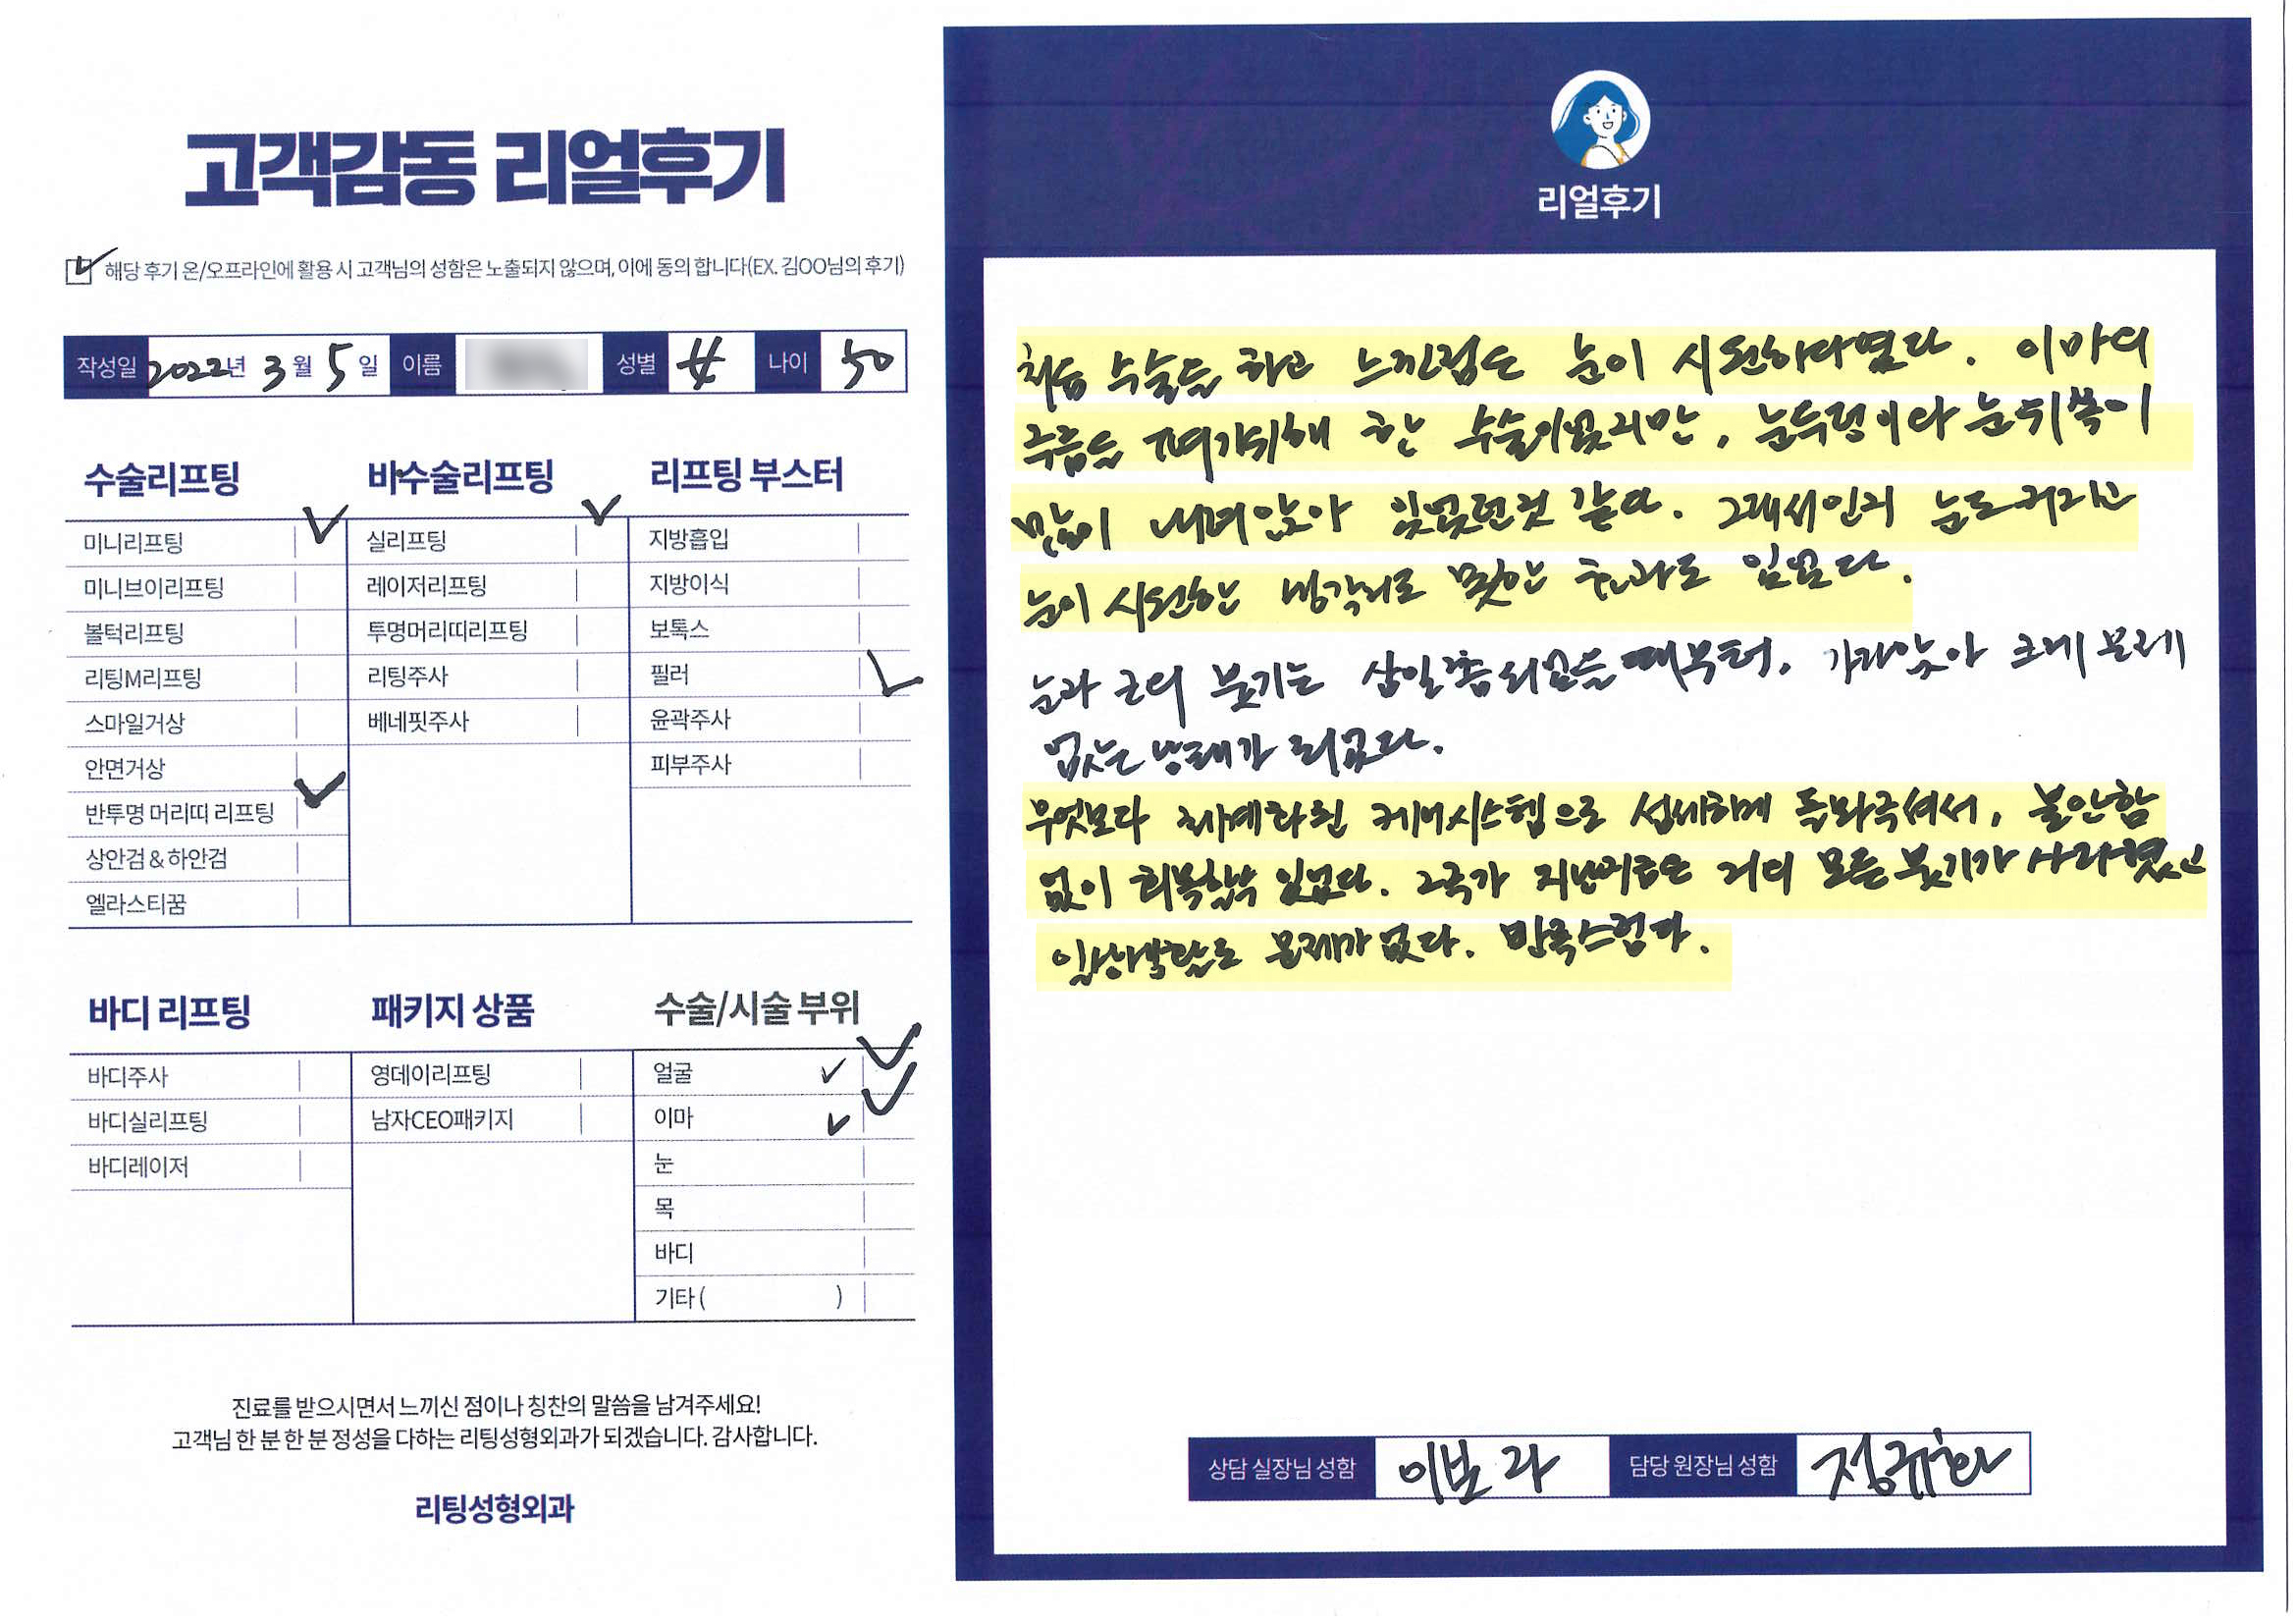 고객감동 리얼후기
해당 후기 온/오프라인에 활용 시 고객님의 성함은 노출되지 않으며, 이에 동의 합니다(EX. 김OO님의 후기)
작성일 2022년 3월 5일 이름 성별 女 나이 50
수술리프팅
미니리프팅
미니브이리프팅
볼턱리프팅
리팅M리프팅
스마일거상
안면거상
반투명 머리띠 리프팅
상안검 & 하안검
엘라스티꿈
비수술리프팅
실리프팅
레이저리프팅
투명머리띠리프팅
리팅주사
베네핏주사
리프팅 부스터
지방흡입
지방이식
보톡스
필러
윤곽주사
피부주사
바디 리프팅
바디주사
바디실리프팅
바디레이저
패키지 상품
영데이리프팅
남자CEO패키지
수술/시술 부위
얼굴
이마
눈
목
바디
기타 ( )
진료를 받으시면서 느끼신 점이나 칭찬의 말씀을 남겨주세요!
고객님 한 분 한 분 정성을 다하는 리팅성형외과가 되겠습니다. 감사합니다.
리팅성형외과
리얼후기
처음 수술을 하고 느낀점은 눈이 시원하다였다. 이마의
주름을 펴기위해 한 수술이었지만, 눈두덩이와 눈위쪽이
많이 내려앉아 있었던것 같다. 그래서인지 눈도 커지고
눈이 시원한 생각지도 못한 효과도 있었다.
눈과 코의 붓기는 삼일쯤 되었을때부터, 가라앉아 크게 문제
없는 상태가 되었다.
무엇보다 체계화된 케어시스템으로 섬세하게 돌봐주셔서, 불안함
없이 회복할수 있었다. 2주가 지난 거의 모든 붓기가 사라졌고
일상생활도 문제가 없다. 만족스럽다.
상담 실장님 성함 이보라 담당 원장님 성함